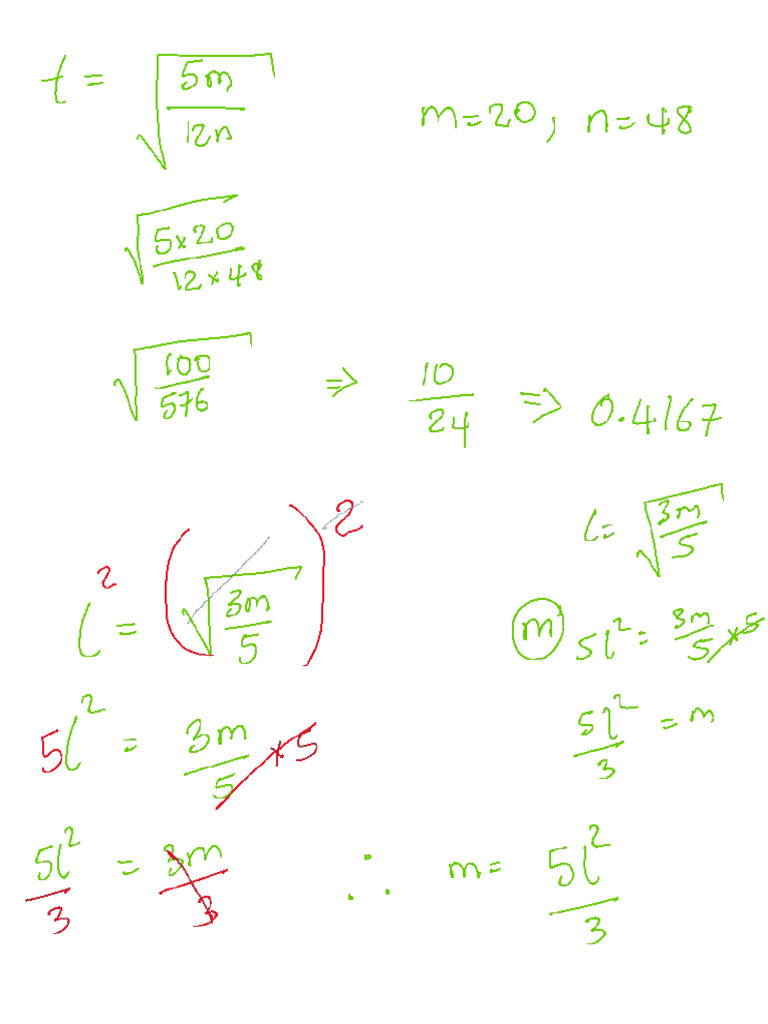 t = √(5m/12n)    m=20, n=48
√(5×20/12×48)
√(100/576) ⇒ 10/24 ⇒ 0.4167
l = √(3m/5)
l² = (√(3m/5))²
(m) 5l² = 3m/5 ×5
5l² = 3m/5 ×5
5l²/3 = m
5l²/3 = 3m/3 ∴ m = 5l²/3